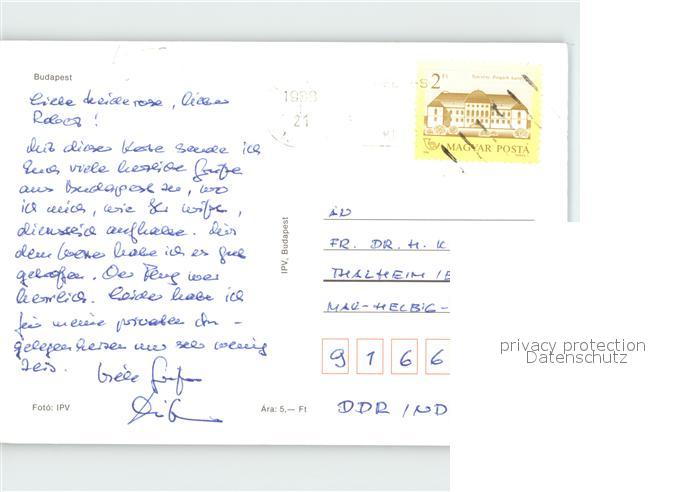 Budapest
Liebe Heiderose, lieber
Robert!
Mit dieser Karte sende ich
Euch viele herzliche Grüße
aus Budapest zu, wo
ich mich, wie Ihr wißt,
dienstlich aufhalte. Mit
dem Wetter habe ich es gut
getroffen. Der Flug war
herrlich. Leider habe ich
für meine privaten An-
gelegenheiten nur sehr wenig
Zeit.
Viele Grüße
Fotó: IPV
Ára: 5,— Ft
IPV, Budapest
1988
21
2 Ft
MAGYAR POSTA
AN
FR. DR. H. K
THALHEIM /E
MAX-HELBIG-
9 1 6 6
DDR / ND
privacy protection
Datenschutz